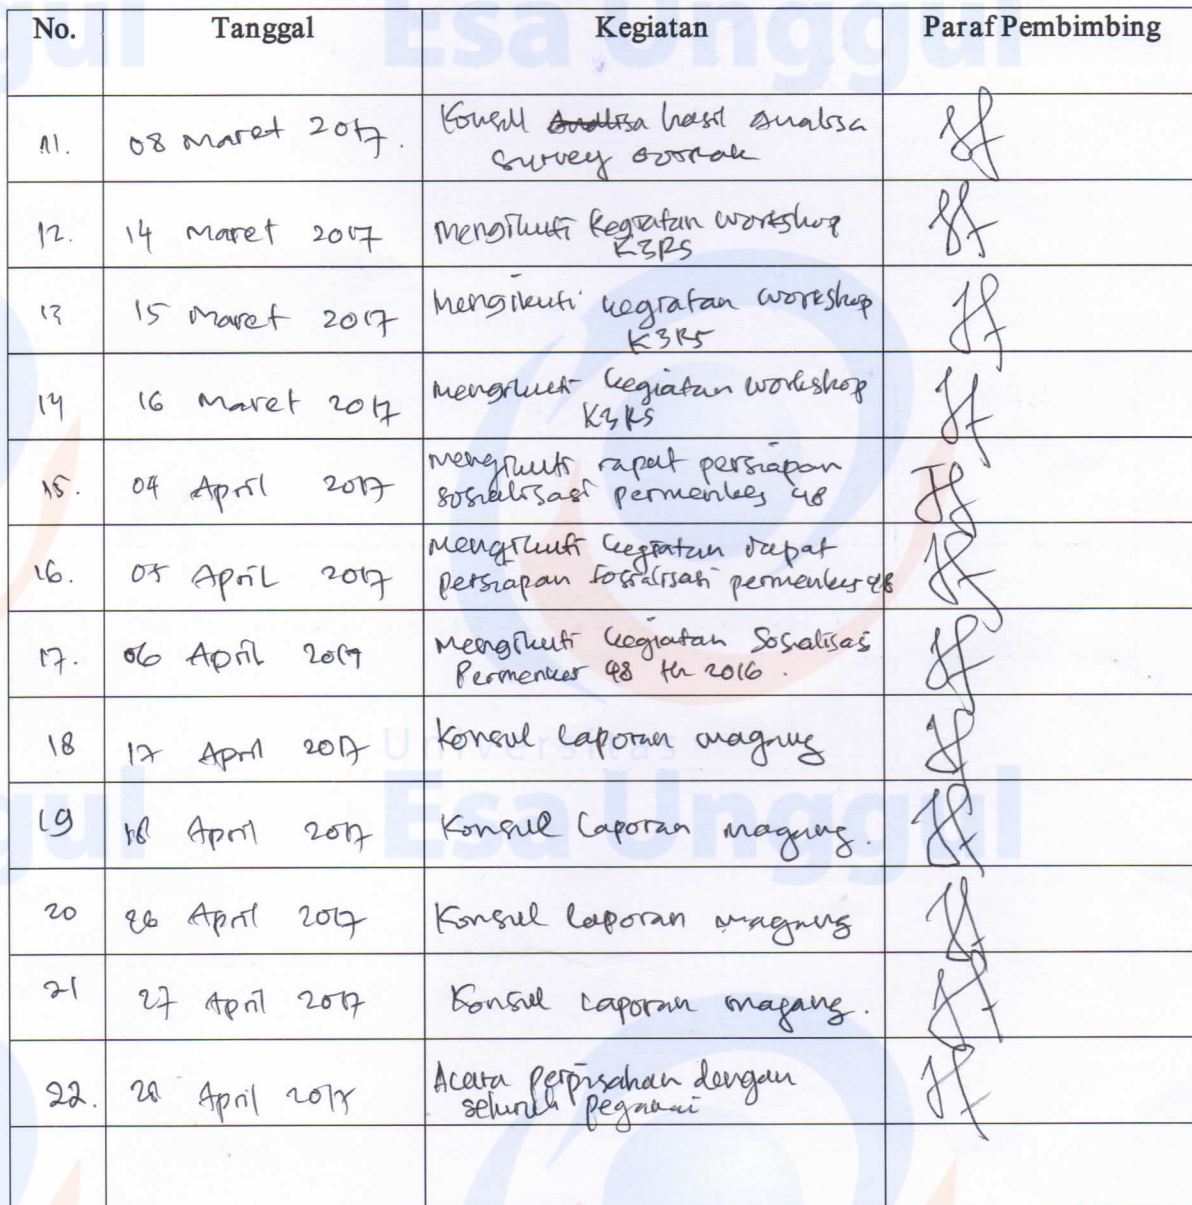 No. Tanggal Kegiatan Paraf Pembimbing
11. 08 Maret 2017. Konsul hasil analisa
survey
12. 14 Maret 2017 Mengikuti kegiatan workshop
K3RS
13 15 Maret 2017 Mengikuti kegiatan workshop
K3RS
14 16 Maret 2017 Mengikuti kegiatan workshop
K3RS
15. 04 April 2017 Mengikuti rapat persiapan
sosialisasi permenkes 48
16. 05 April 2017 Mengikuti kegiatan rapat
persiapan sosialisasi permenkes 48
17. 06 April 2017 Mengikuti kegiatan Sosialisasi
Permenkes 48 th 2016.
18 17 April 2017 Konsul Laporan magang
19 18 April 2017 Konsul Laporan magang.
20 26 April 2017 Konsul Laporan magang
21 27 April 2017 Konsul Laporan magang.
22. 28 April 2017 Acara perpisahan dengan
seluruh pegawai
Universitas
Esa Unggul